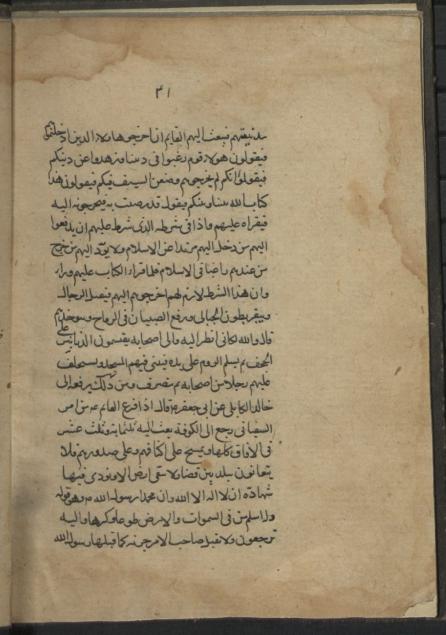 ٣١
بمدينتهم فيبعث اليهم القايم ان اخرجوا هؤلاء الذين ادخلتموهم
فيقولون هؤلاء قوم رغبوا فى ديننا وزهدوا عن دينكم
فيقول انكم ان لم تخرجوهم وضعنا السيف فيكم فيقولون هذا
كتاب الله بيننا وبينكم فيقول قد رضيت به فيخرجونه اليه
فيقراه عليهم واذا فى شرطه الذى شرط عليهم ان يدفعوا
اليهم من دخل اليهم مرتدا عن الاسلام ولا يرد اليهم من خرج
من عندهم راغبا فى الاسلام فلما قراء الكتاب عليهم وراو
وان هذا الشرط لازم لهم اخرجوهم اليهم فيقتل الرجال
ويبقر بطون الحبالى ويرفع الصلبان فى الرماح
قال والله لكانى انظر اليه والى اصحابه يقتسمون الدنانير على
الجحف ثم يسلم الروم على يده فيبنى فيهم المسجد ويستخلف
عليهم رجلا من اصحابه ثم ينصرف ومن ذلك يرفعه الى
خالد الكابلى عن ابى جعفر ع قال اذا فرغ القايم ع من امر
السفيانى رجع الى الكوفة بعث ثلثمائة وثلثة عشر
فى الافاق كلها ويمسح على اكتافهم وعلى صدورهم فلا
يتعايون بلد بين قضاء لا تبقى ارض الا ونودى فيها
شهادة ان لا اله الا الله وان محمدا رسول الله ص وهو قوله
وله اسلم من فى السموات والارض طوعا وكرها واليه
ترجعون ولا يقبل صاحب الامر جزية كما قبلها رسول الله